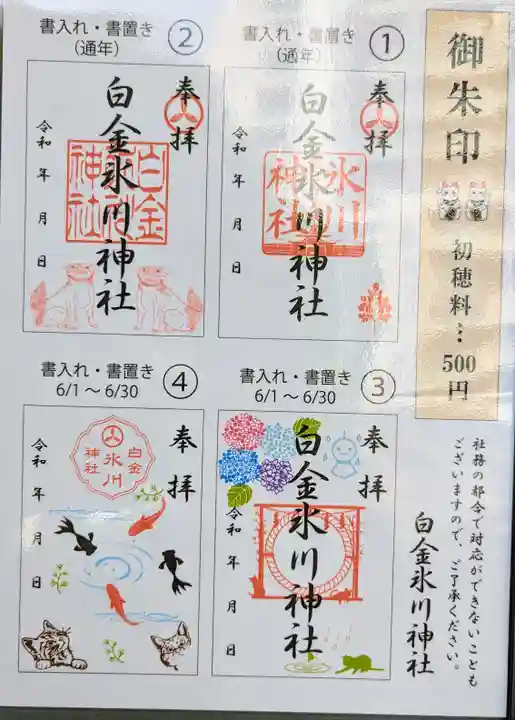 御朱印
初穂料…500円
社務の都合で対応ができないことも
ございますので、ご了承ください。
白金氷川神社
書入れ・書置き
(通年)
①
奉拝
白金氷川神社
氷川神社
令和 年 月 日
書入れ・書置き
(通年)
②
奉拝
白金氷川神社
令和 年 月 日
書入れ・書置き
6/1～6/30
③
奉拝
白金氷川神社
令和 年 月 日
書入れ・書置き
6/1～6/30
④
奉拝
白金
氷川
神社
令和 年 月 日